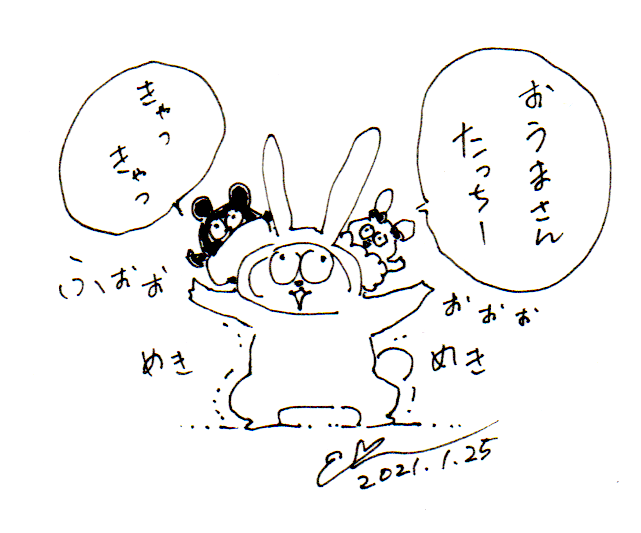 おうまさん
たっちー
きゃっ
きゃっ
ふぉぉぉ
ぉぉぉ
めき
めき
2021.1.25